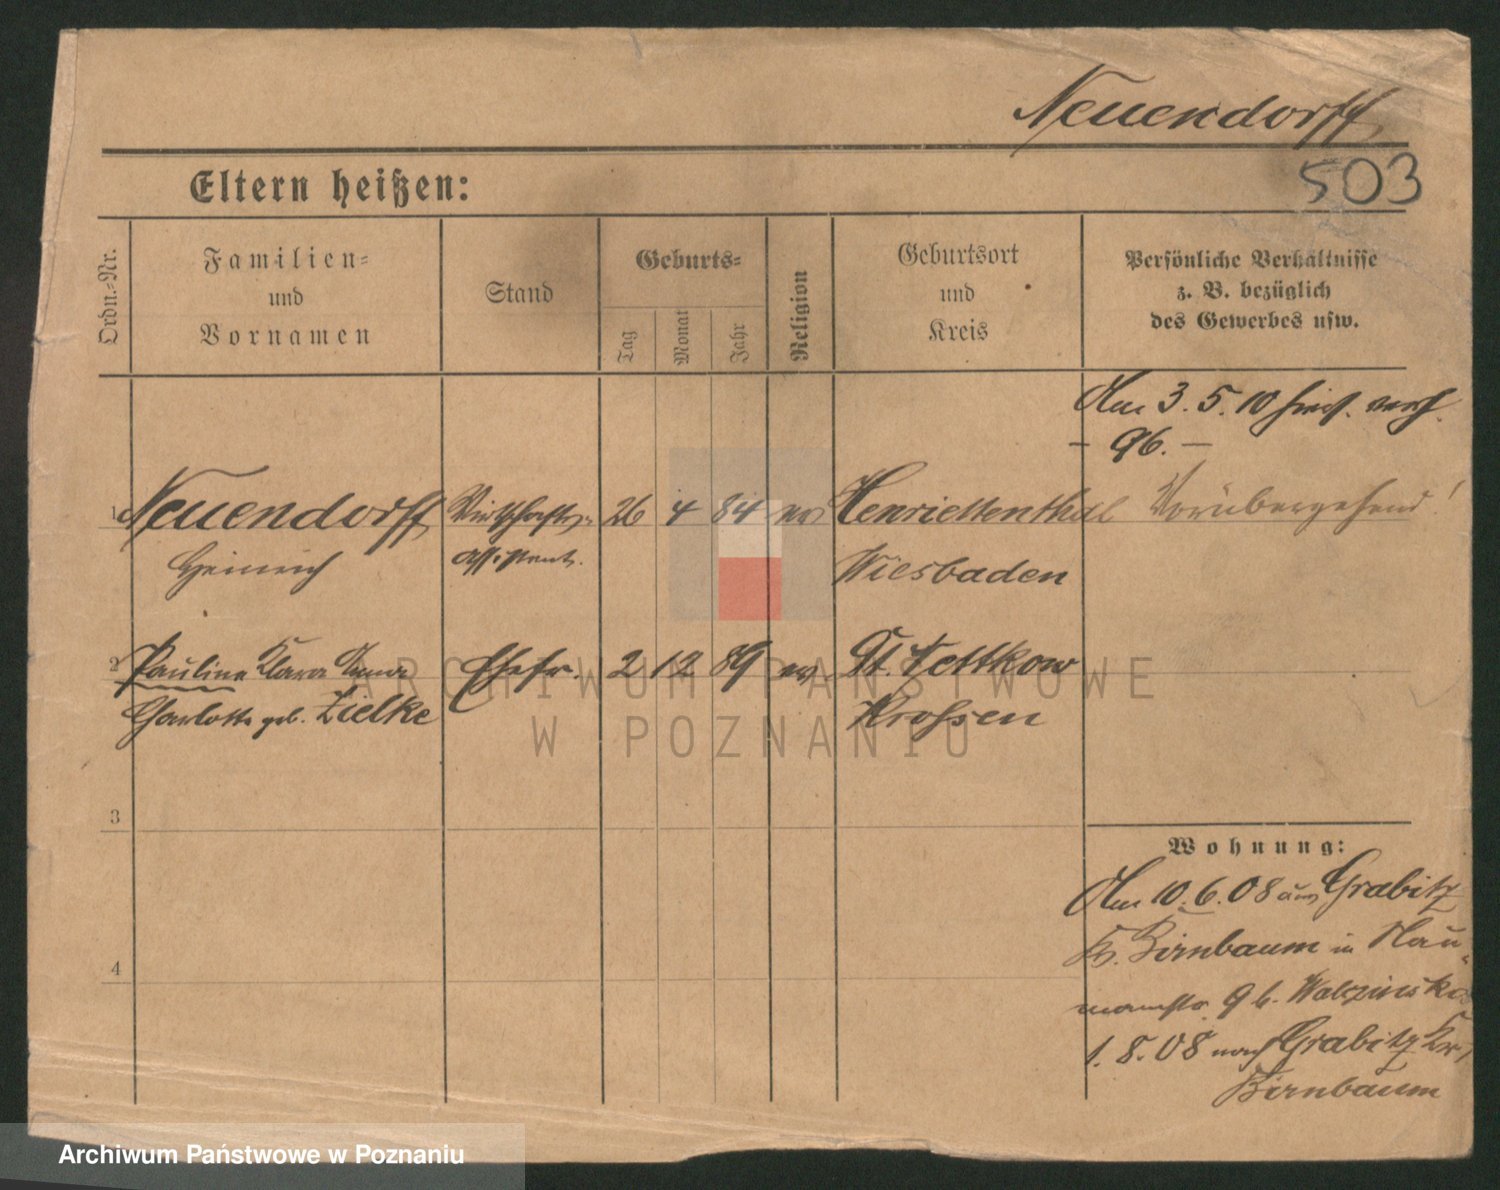 Neuendorff
503
Eltern heißen:
Ordn.-Nr.
Familien-
und
Vornamen
Stand
Geburts-
Tag
Monat
Jahr
Religion
Geburtsort
und
Kreis
Persönliche Verhältnisse
z. B. bezüglich
des Gewerbes usw.
Am 3. 5. 10
- 96. -
1 Neuendorff Wirtschafts- 26 4 84 ev Henriettenthal Vorübergehend!
Heinrich assistent. Wiesbaden
2 Pauline Klara Anna Ehefr. 2 12 89 ev Gr. Tettkow
Charlotte geb. Zielke Krossen
3
4
Wohnung:
Am 10. 6. 08 aus Grabitz
Kr. Birnbaum in Nau-
mannstr. 9 b.
1. 8. 08 nach Grabitz Kr.
Birnbaum
ARCHIWUM PAŃSTWOWE
W POZNANIU
Archiwum Państwowe w Poznaniu